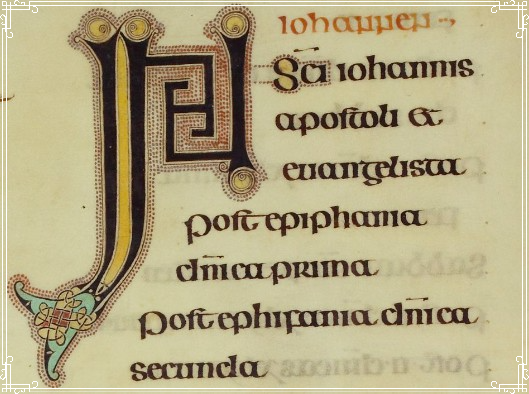 iohannen.,
Sc̄i iohannis
apostoli et
euangelista
post epiphania
dm̄ica prima
post ephifania dm̄ica
secunda